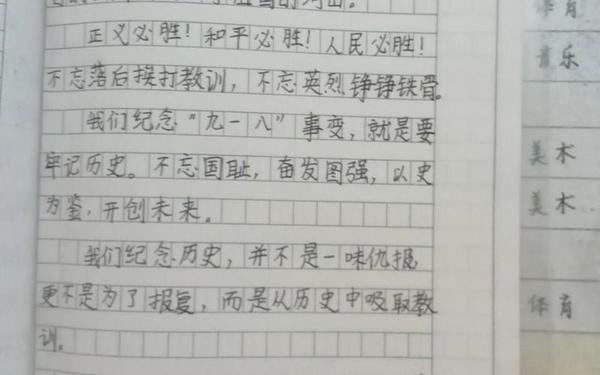 正义必胜！和平必胜！人民必胜！
不忘落后挨打教训，不忘英烈铮铮铁骨。
我们纪念“九一八”事变，就是要
牢记历史。不忘国耻，奋发图强，以史
为鉴，开创未来。
我们纪念历史，并不是一味仇报，
更不是为了报复，而是从历史中吸取教
训。
体育
音乐
美术
美术
体育